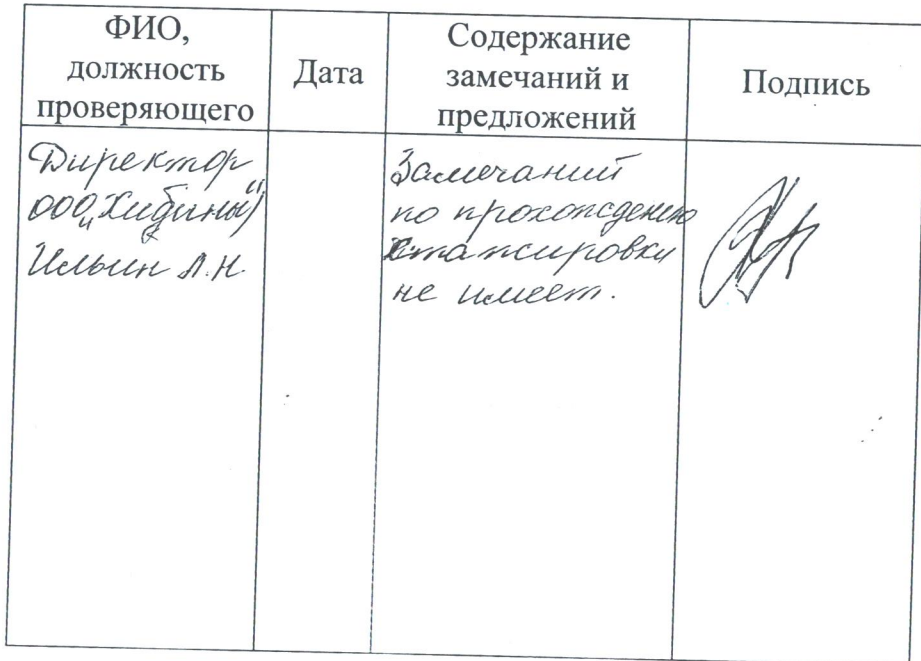 ФИО,
должность
проверяющего
Дата
Содержание
замечаний и
предложений
Подпись
Директор
ООО „Хибины"
Ильин А.Н.
Замечаний
по прохождению
стажировки
не имеет.